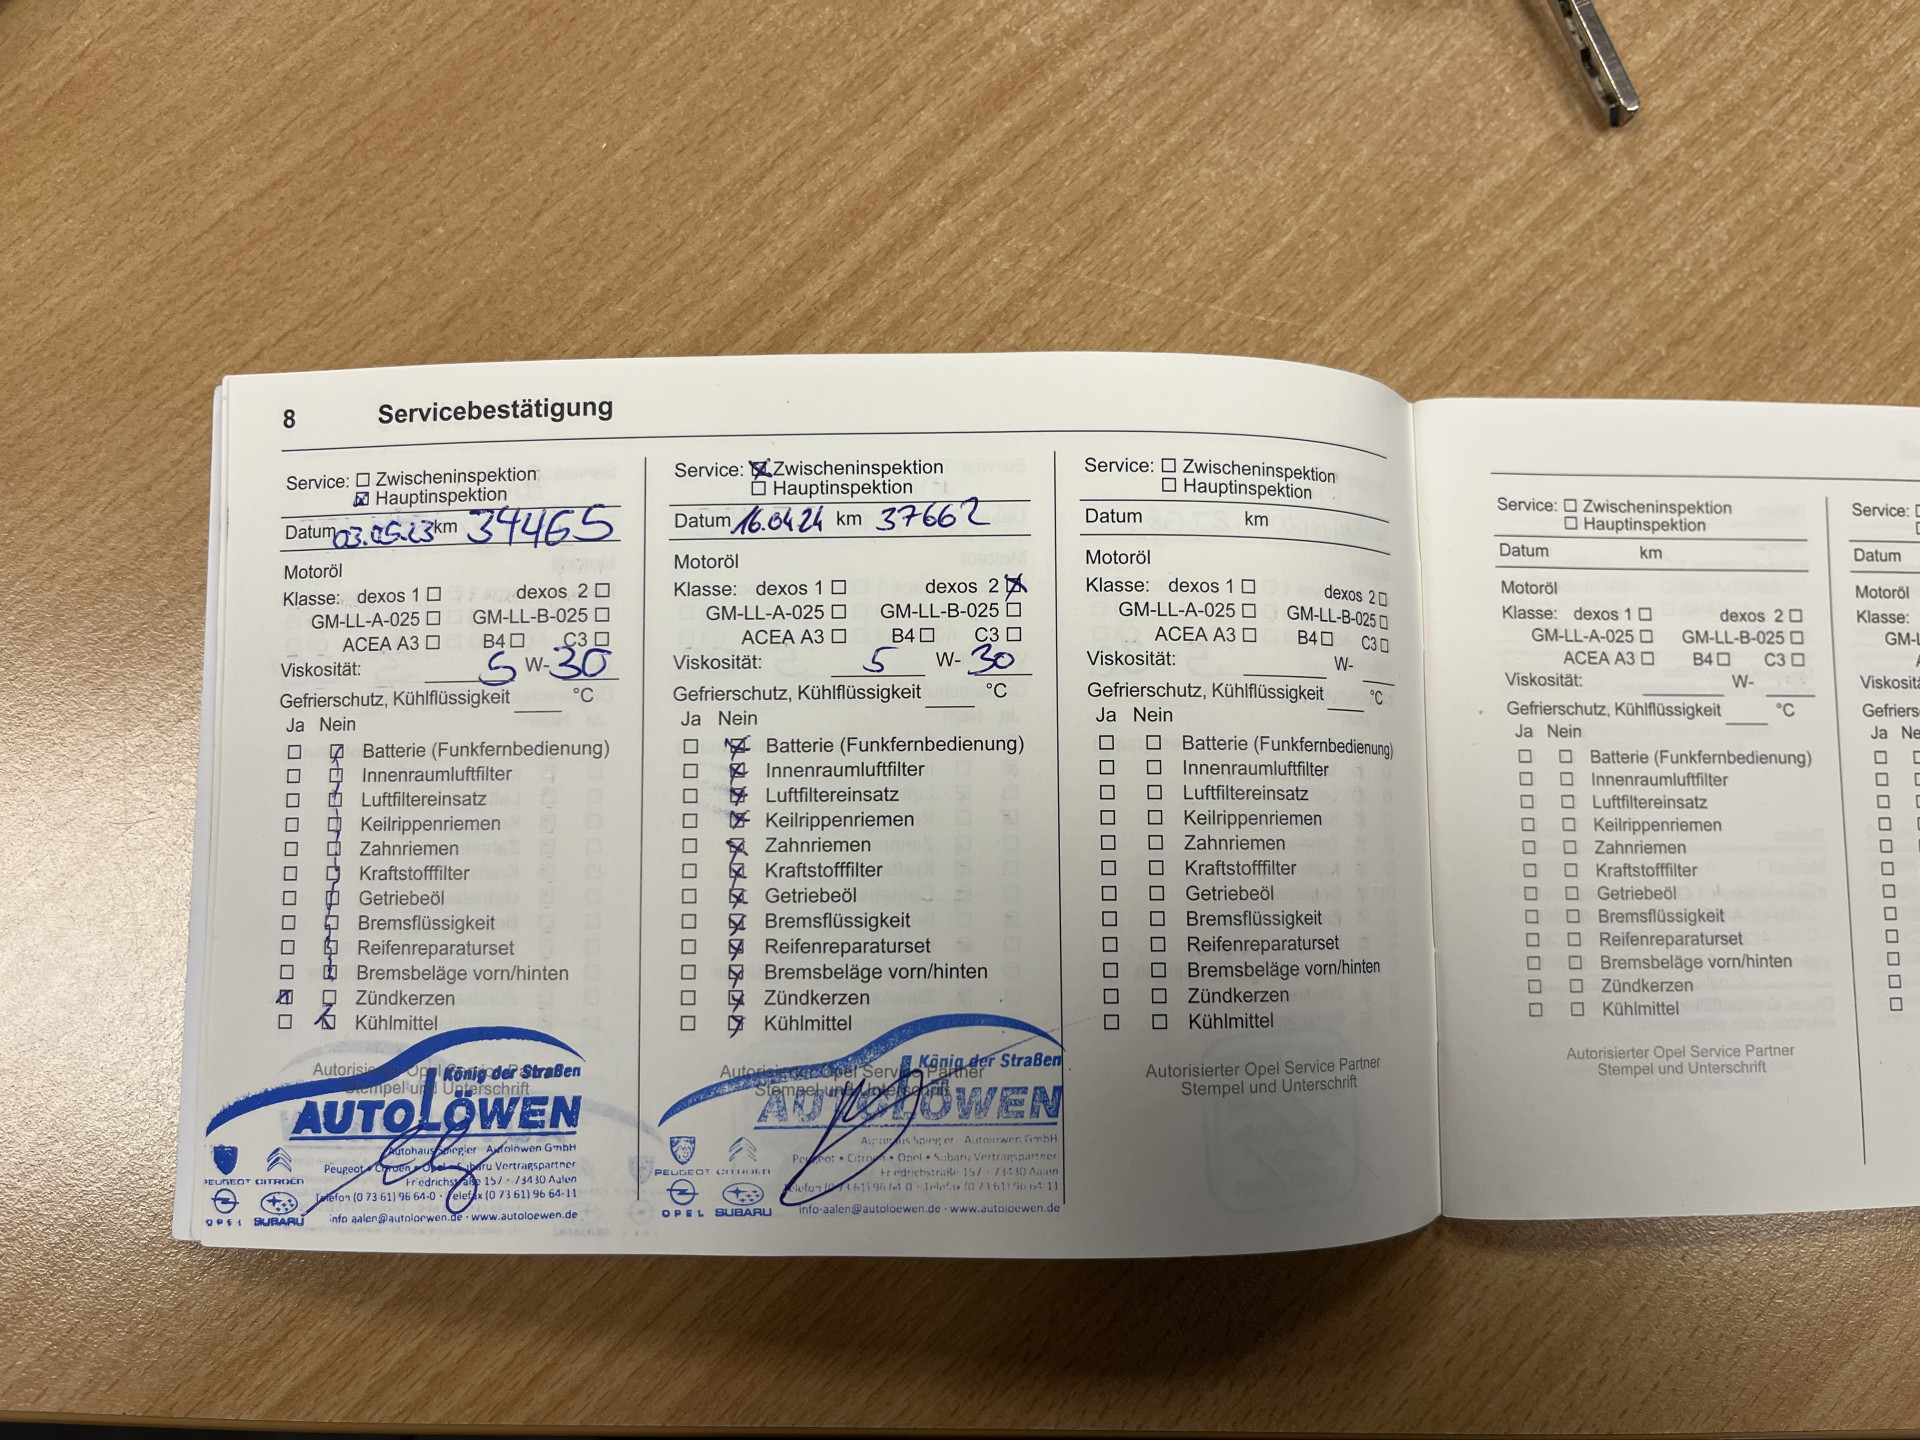 8 Servicebestätigung
Service: Zwischeninspektion
Hauptinspektion
Datum 03.05.23 km 34465
Motoröl
Klasse: dexos 1 dexos 2
GM-LL-A-025 GM-LL-B-025
ACEA A3 B4 C3
Viskosität: 5 W- 30
Gefrierschutz, Kühlflüssigkeit °C
Ja Nein
Batterie (Funkfernbedienung)
Innenraumluftfilter
Luftfiltereinsatz
Keilrippenriemen
Zahnriemen
Kraftstofffilter
Getriebeöl
Bremsflüssigkeit
Reifenreparaturset
Bremsbeläge vorn/hinten
Zündkerzen
Kühlmittel
Autorisierter Opel Service Partner
Stempel und Unterschrift
König der Straßen
AUTOLÖWEN
Autohaus Spiegler Autolöwen GmbH
Peugeot • Citroën • Opel • Subaru Vertragspartner
Friedrichstraße 157 · 73430 Aalen
Telefon (0 73 61) 96 64-0 · Telefax (0 73 61) 96 64-11
info-aalen@autoloewen.de · www.autoloewen.de
PEUGEOT CITROËN
OPEL SUBARU
Service: Zwischeninspektion
Hauptinspektion
Datum 16.04.24 km 37662
Motoröl
Klasse: dexos 1 dexos 2
GM-LL-A-025 GM-LL-B-025
ACEA A3 B4 C3
Viskosität: 5 W- 30
Gefrierschutz, Kühlflüssigkeit °C
Ja Nein
Batterie (Funkfernbedienung)
Innenraumluftfilter
Luftfiltereinsatz
Keilrippenriemen
Zahnriemen
Kraftstofffilter
Getriebeöl
Bremsflüssigkeit
Reifenreparaturset
Bremsbeläge vorn/hinten
Zündkerzen
Kühlmittel
Autorisierter Opel Service Partner
Stempel und Unterschrift
König der Straßen
AUTOLÖWEN
Autohaus Spiegler Autolöwen GmbH
Peugeot • Citroën • Opel • Subaru Vertragspartner
Friedrichstraße 157 · 73430 Aalen
Telefon (0 73 61) 96 64-0 · Telefax (0 73 61) 96 64-11
info-aalen@autoloewen.de · www.autoloewen.de
PEUGEOT CITROËN
OPEL SUBARU
Service: Zwischeninspektion
Hauptinspektion
Datum km
Motoröl
Klasse: dexos 1 dexos 2
GM-LL-A-025 GM-LL-B-025
ACEA A3 B4 C3
Viskosität: W-
Gefrierschutz, Kühlflüssigkeit °C
Ja Nein
Batterie (Funkfernbedienung)
Innenraumluftfilter
Luftfiltereinsatz
Keilrippenriemen
Zahnriemen
Kraftstofffilter
Getriebeöl
Bremsflüssigkeit
Reifenreparaturset
Bremsbeläge vorn/hinten
Zündkerzen
Kühlmittel
Autorisierter Opel Service Partner
Stempel und Unterschrift
Service: Zwischeninspektion
Hauptinspektion
Datum km
Motoröl
Klasse: dexos 1 dexos 2
GM-LL-A-025 GM-LL-B-025
ACEA A3 B4 C3
Viskosität: W-
Gefrierschutz, Kühlflüssigkeit °C
Ja Nein
Batterie (Funkfernbedienung)
Innenraumluftfilter
Luftfiltereinsatz
Keilrippenriemen
Zahnriemen
Kraftstofffilter
Getriebeöl
Bremsflüssigkeit
Reifenreparaturset
Bremsbeläge vorn/hinten
Zündkerzen
Kühlmittel
Autorisierter Opel Service Partner
Stempel und Unterschrift
Service:
Datum
Motoröl
Klasse:
Ja